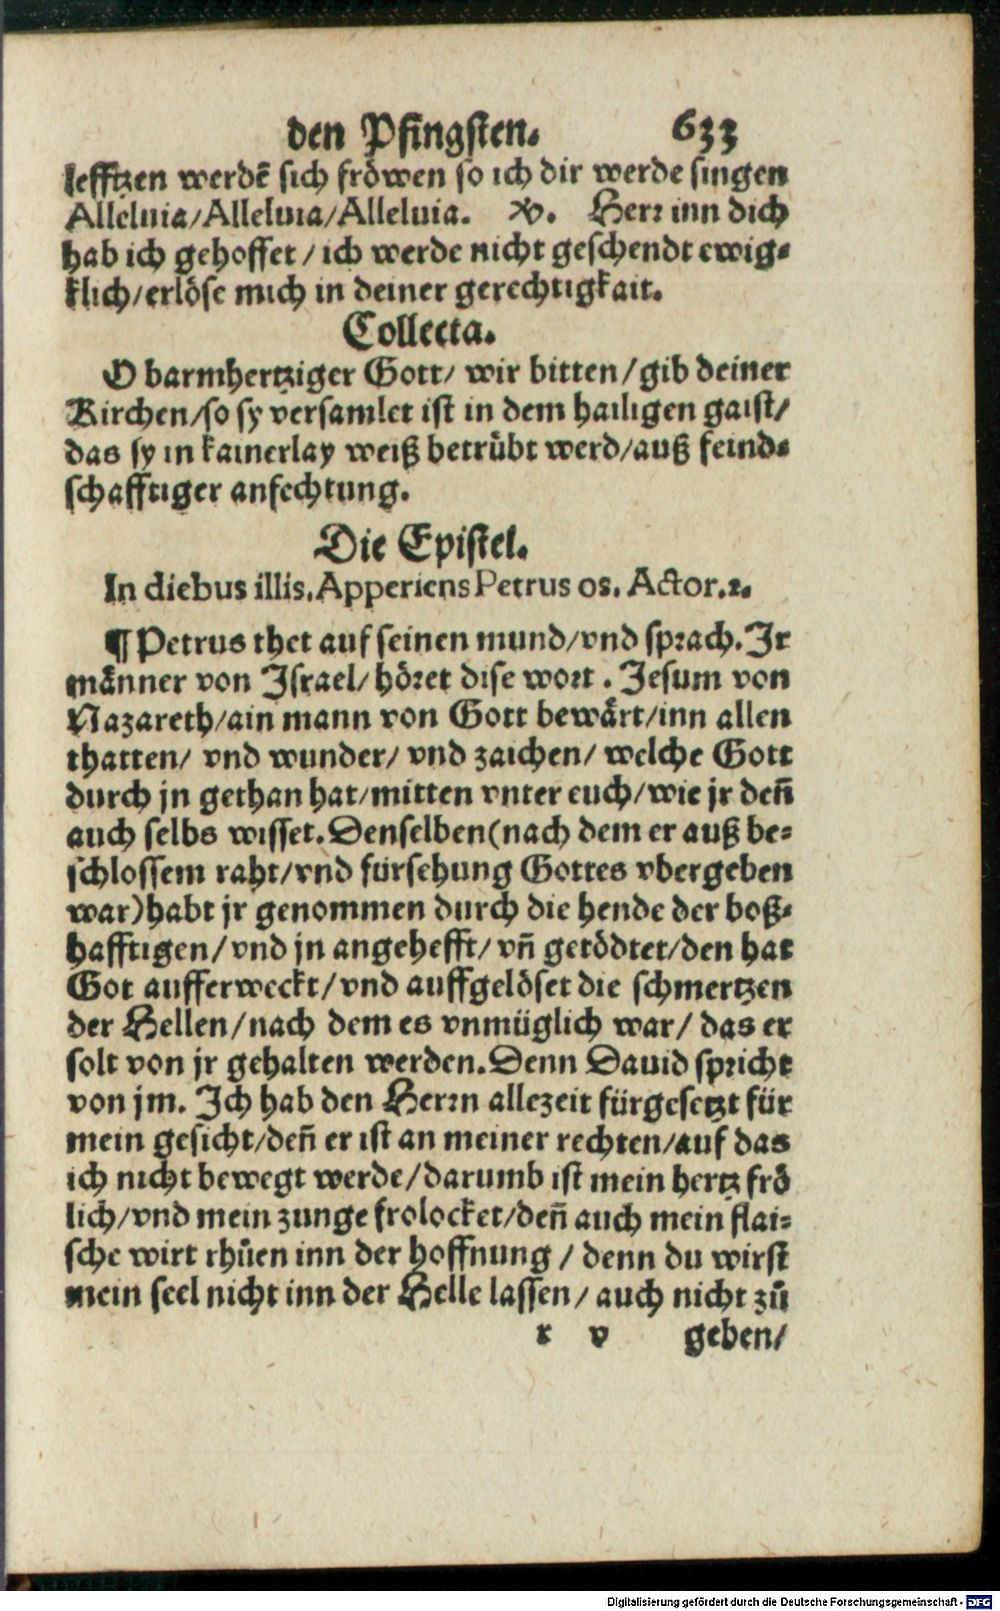 den Pfingsten. 633
lefftzen werdẽ sich fröwen so ich dir werde singen
Alleluia/Alleluia/Alleluia. V. Herr inn dich
hab ich gehoffet / ich werde nicht geschendt ewig-
klich/erlöse mich in deiner gerechtigkait.
Collecta.
O barmhertziger Gott/ wir bitten/gib deiner
Kirchen/so sy versamlet ist in dem hailigen gaist/
das sy in kainerlay weiß betrübt werd/auß feind-
schafftiger anfechtung.
Die Epistel.
In diebus illis. Apperiens Petrus os. Actor.2.
¶ Petrus thet auf seinen mund/vnd sprach. Ir
männer von Israel/höret dise wort. Jesum von
Nazareth/ain mann von Gott bewärt/inn allen
thatten/ vnd wunder/ vnd zaichen/ welche Gott
durch jn gethan hat/mitten vnter euch/wie jr deñ
auch selbs wisset. Denselben (nach dem er auß be-
schlossem raht/vnd fürsehung Gottes vbergeben
war) habt jr genommen durch die hende der boß-
hafftigen/vnd jn angehefft/vñ getödtet/den hat
Got aufferweckt/vnd auffgelöset die schmertzen
der Hellen/nach dem es vnmüglich war/ das er
solt von jr gehalten werden. Denn Dauid spricht
von jm. Ich hab den Herrn allezeit fürgesetzt für
mein gesicht/deñ er ist an meiner rechten/auf das
ich nicht bewegt werde/darumb ist mein hertz frö
lich/vnd mein zunge frolocket/deñ auch mein flai-
sche wirt rhůen inn der hoffnung / denn du wirst
mein seel nicht inn der Helle lassen/ auch nicht zů
r v geben/
Digitalisierung gefördert durch die Deutsche Forschungsgemeinschaft - DFG